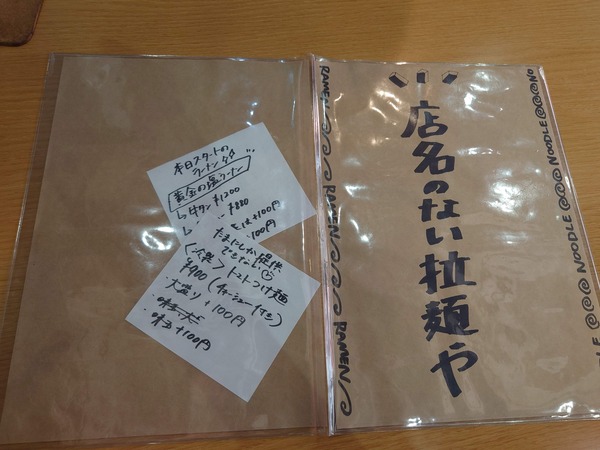 店名のない拉麺や
RAMEN
RAMEN
RAMEN
NOODLE
NOODLE
NOODLE
NO
本日スタートの
ラーメン
黄金の塩ラーメン
¥1200
¥880
+100円
100円
たまにしか提供
できない
トマトつけ麺
¥900（チャーシューナシ）
大盛り+100円
・味玉+100円